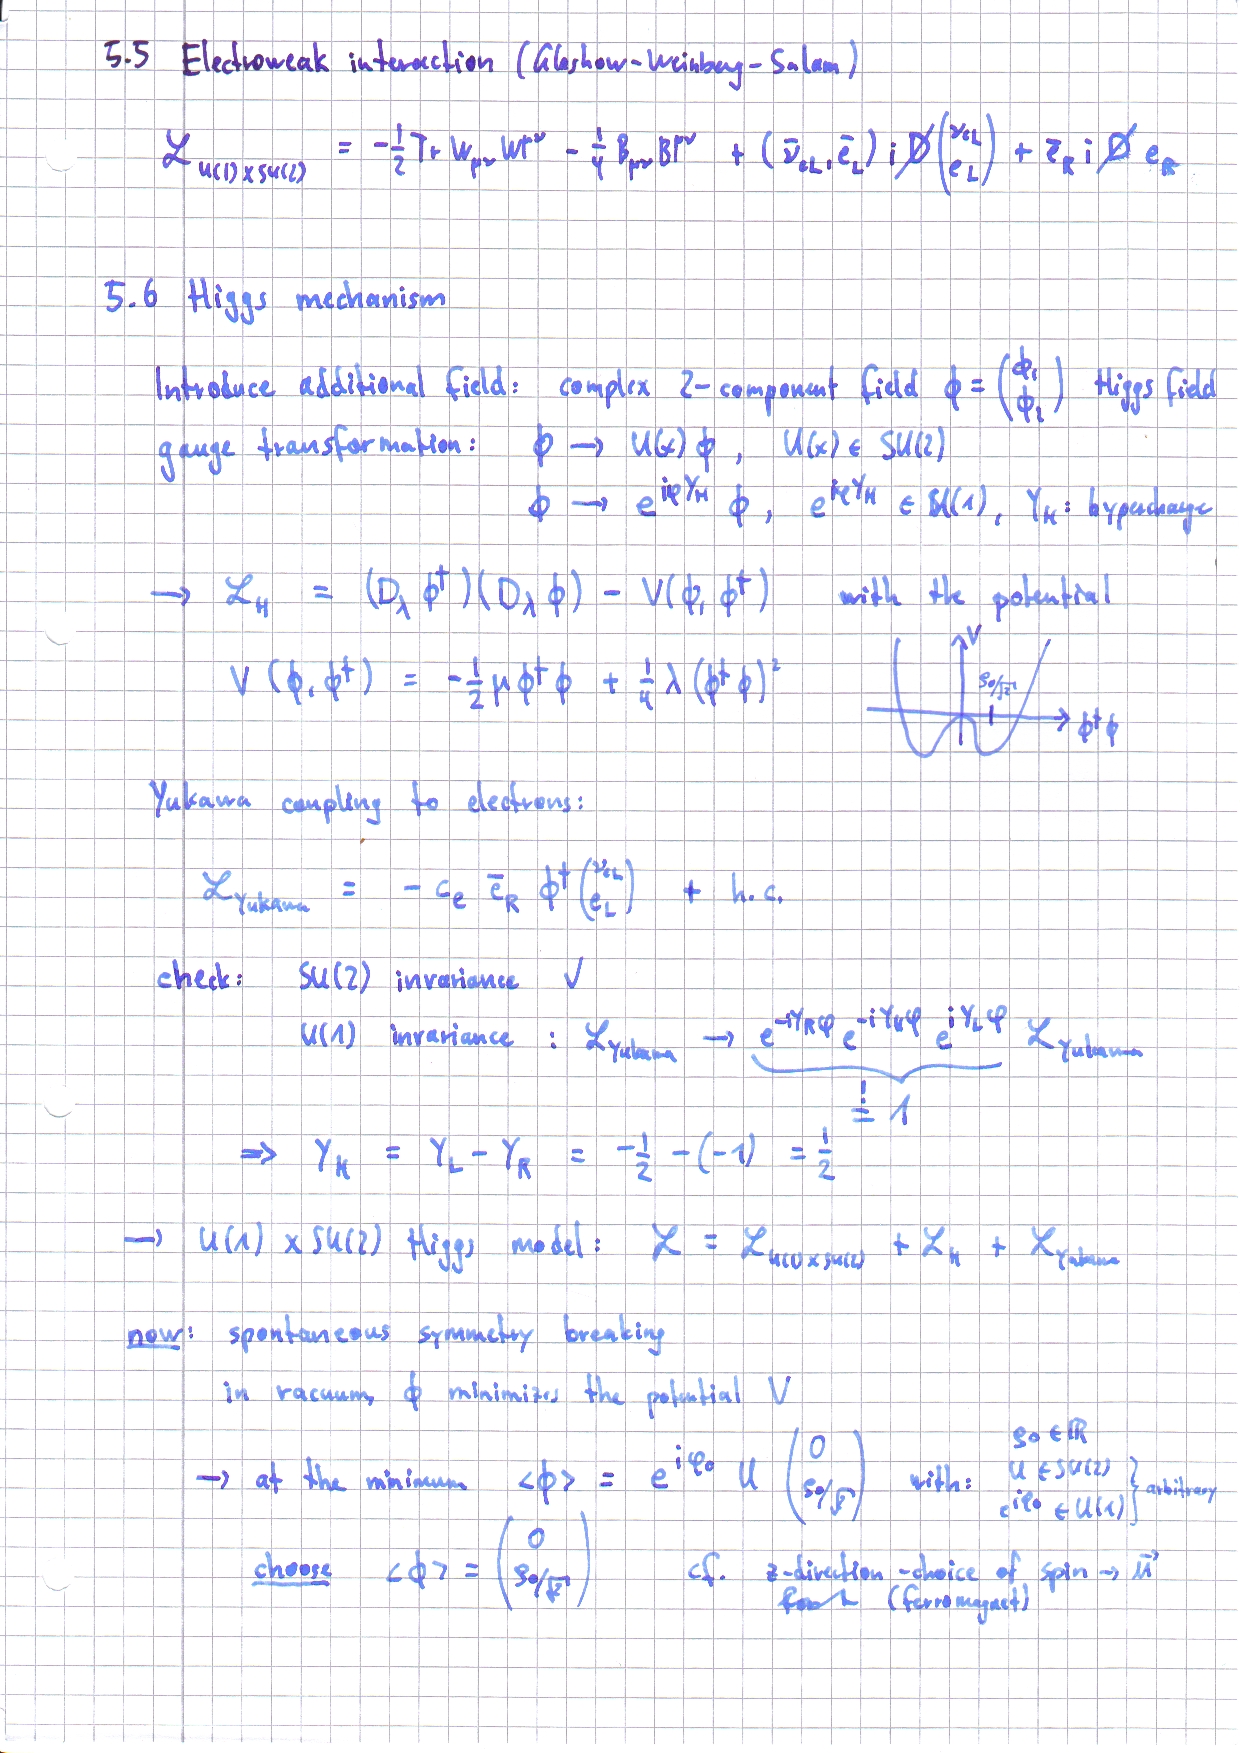 5.5 Electroweak interaction (Glashow-Weinberg-Salam)
ℒ_{U(1)×SU(2)} = -1/2 Tr W_{μν} W^{μν} - 1/4 B_{μν} B^{μν} + (ν̄_{eL}, ē_L) i D̸ (ν_{eL} e_L) + ē_R i D̸ e_R
5.6 Higgs mechanism
Introduce additional field: complex 2-component field ϕ = (ϕ_1 ϕ_2) Higgs field
gauge transformation: ϕ → U(x) ϕ, U(x) ∈ SU(2)
ϕ → e^{iφY_H} ϕ, e^{iφY_H} ∈ U(1), Y_H: hypercharge
→ ℒ_H = (D_λ ϕ†)(D_λ ϕ) - V(ϕ, ϕ†) with the potential
V(ϕ, ϕ†) = -1/2 μ ϕ†ϕ + 1/4 λ (ϕ†ϕ)²
V
ρ_0/√2
ϕ†ϕ
Yukawa coupling to electrons:
ℒ_{Yukawa} = - c_e ē_R ϕ† (ν_{eL} e_L) + h.c.
check: SU(2) invariance √
U(1) invariance : ℒ_{Yukawa} → e^{-iY_Rφ} e^{-iY_Hφ} e^{iY_Lφ} ℒ_{Yukawa}
! = 1
⇒ Y_H = Y_L - Y_R = -1/2 - (-1) = 1/2
→ U(1) × SU(2) Higgs model: ℒ = ℒ_{U(1)×SU(2)} + ℒ_H + ℒ_{Yukawa}
now: spontaneous symmetry breaking
in vacuum, ϕ minimizes the potential V
→ at the minimum <ϕ> = e^{iφ_0} U (0 ρ_0/√2) with: ρ_0 ∈ ℝ
U ∈ SU(2)
e^{iφ_0} ∈ U(1) } arbitrary
choose <ϕ> = (0 ρ_0/√2) cf. z-direction-choice of spin →
(ferromagnet)